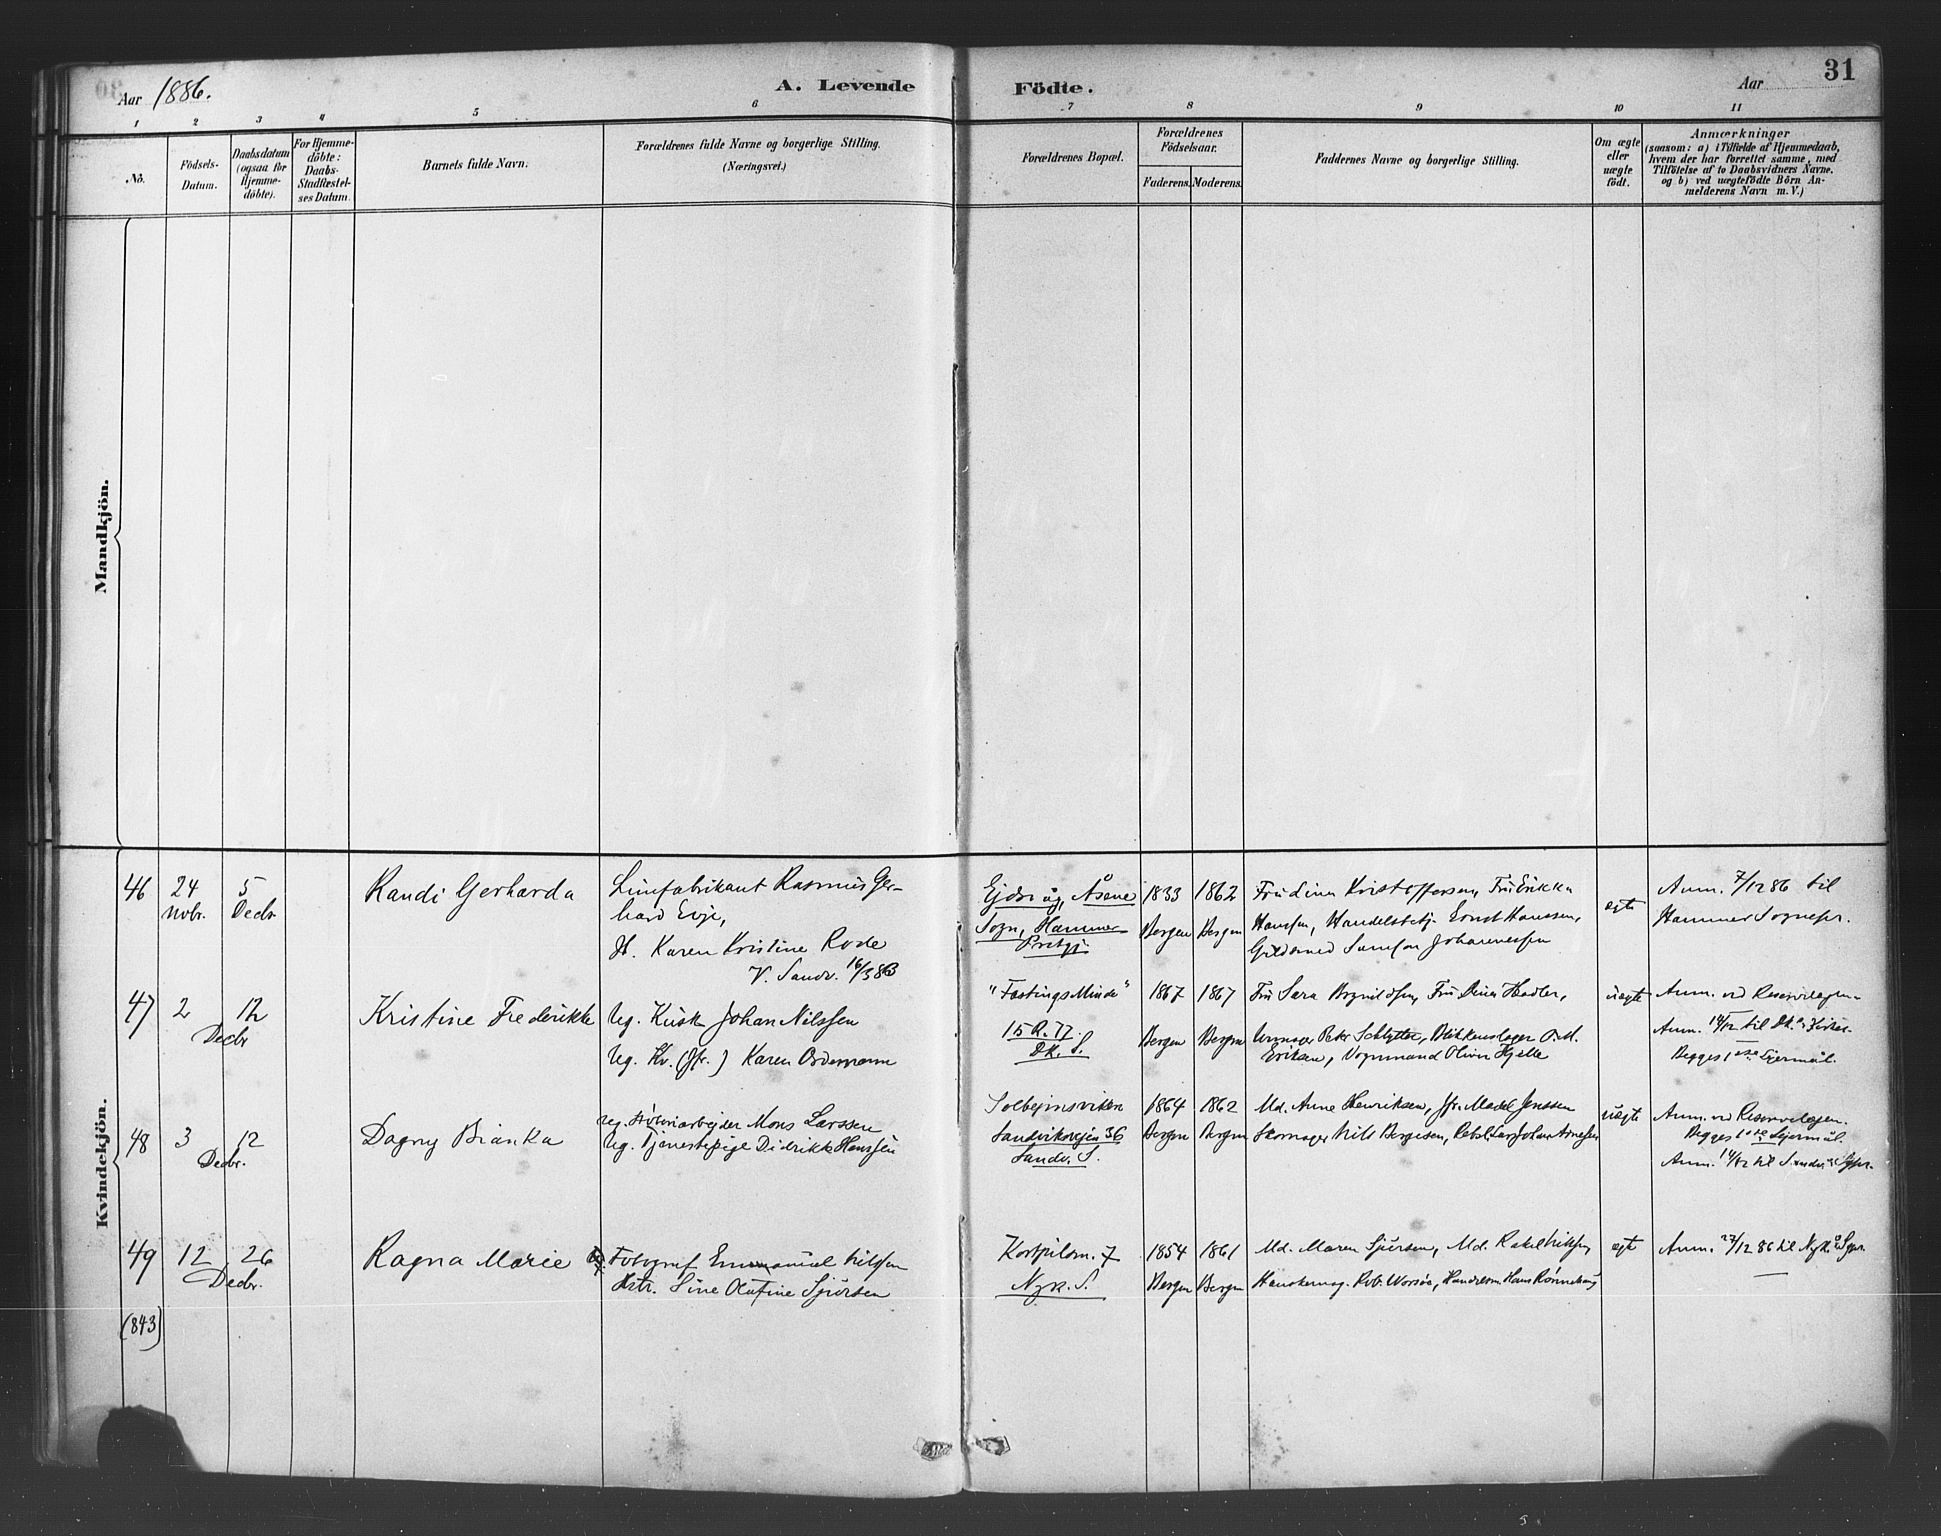 Aar 1886.
A. Levende Födte.
Aar
31
1 2 3 4 5 6 7 8 9 10 11
No.
Födsels-Datum.
Daabsdatum (ogsaa for Hjemme-döbte).
For Hjemme-döbte: Daabs-Stadfæstel-ses Datum.
Barnets fulde Navn.
Forældrenes fulde Navne og borgerlige Stilling.
(Næringsvei.)
Forældrenes Bopæl.
Forældrenes Födselsaar.
Faderens. Moderens.
Faddernes Navne og borgerlige Stilling.
Om ægte eller uægte födt.
Anmærkninger
(saasom: a) i Tilfælde af Hjemmedaab,
hvem der har forrettet samme, med
Tilföielse af to Daabsvidners Navne.
og b) ved uægtefödte Börn An-
melderens Navn m. V.)
Mandkjön.
Kvindekjön.
46 24 Novbr. 5 Decbr
Randi Gerharda
Limfabrikant Rasmus Ger-
hard Evje,
H. Karen Kristine Rode
V. Sandv. 16/3 83
Åsene
Sogn, Hammer
Prstgj
1833 Bergen
1862 Bergen
Fru Lina Kristoffersen, Fru Erikka
Hansen, Handelsbetj. Ernst Hanssen,
Johannessen
ægte
Anm. 7/12 86 til
Hammer Sognepr.
47 2 12 Decbr
Kristine Frederikke
Ug. Kusk Johan Nilssen
Ug. Kv. (Jfr.) Karen
"Fastings Minde"
15 R. 17.
Dk. S.
1867 Bergen
1867 Bergen
Fru Sara Fru Dina Hadler,
Urmager Peter Schlytter, Blikkenslager O. M.
Eriksen, Vognmand Oliver Hjelle
uægte
Anm. ved Reservelægen
Anm. 14/12 til Dk.s
Begges 1ste Leiermål.
48 3 12 Decbr.
Dagny Bianka
Ug. Mons Larssen
Ug. Tjenestepige Didrikke Hanssen
Sandviksvejen 36
Sandv. S.
1864 Bergen
1862 Bergen
Md. Anne Henriksen, Jfr. Jenssen
Skomager Nils Bergesen, Johan Arnesen
uægte
Anm. ved Reservelægen.
Begges 1ste Leiermål.
Anm. 14/12 til Sandv.
49 12 26 Decbr.
Ragna Marie
Fotograf Emmanuel Nilsen
Hstr. Line Olafine Sjursen
7
Nyk. S.
1854 Bergen
1861 Bergen
Md. Maren Sjursen, Md. Rakel
Hanskemag. Rob. Worsøe, Hans
ægte
Anm. 27/12 86 til Nyk.
(843)